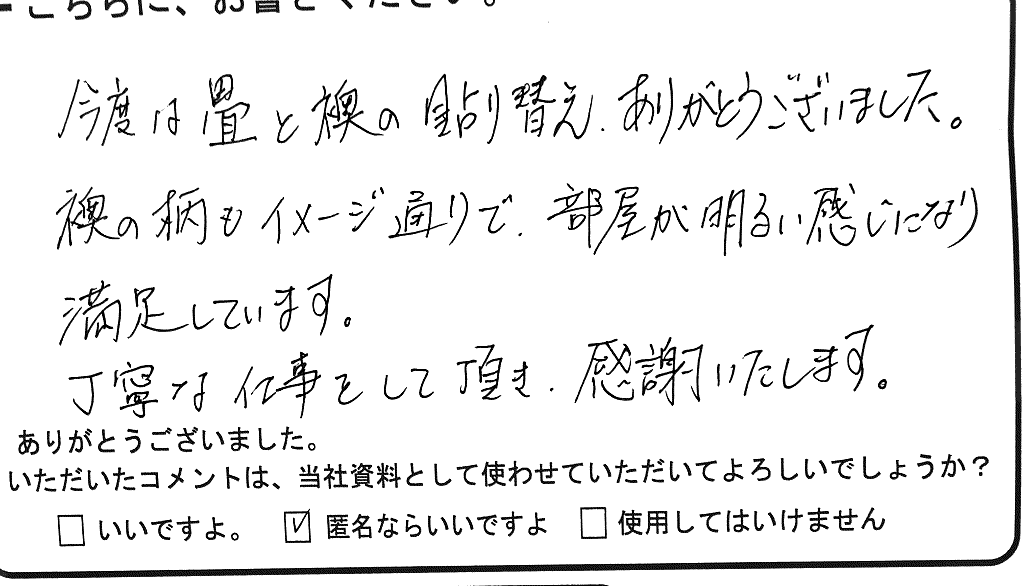 こちらに、お書きください。
今度は畳と襖の貼り替え、ありがとうございました。
襖の柄もイメージ通りで、部屋が明るい感じになり
満足しています。
丁寧な仕事をして頂き、感謝いたします。
ありがとうございました。
いただいたコメントは、当社資料として使わせていただいてよろしいでしょうか？
□ いいですよ。 ☑ 匿名ならいいですよ □ 使用してはいけません